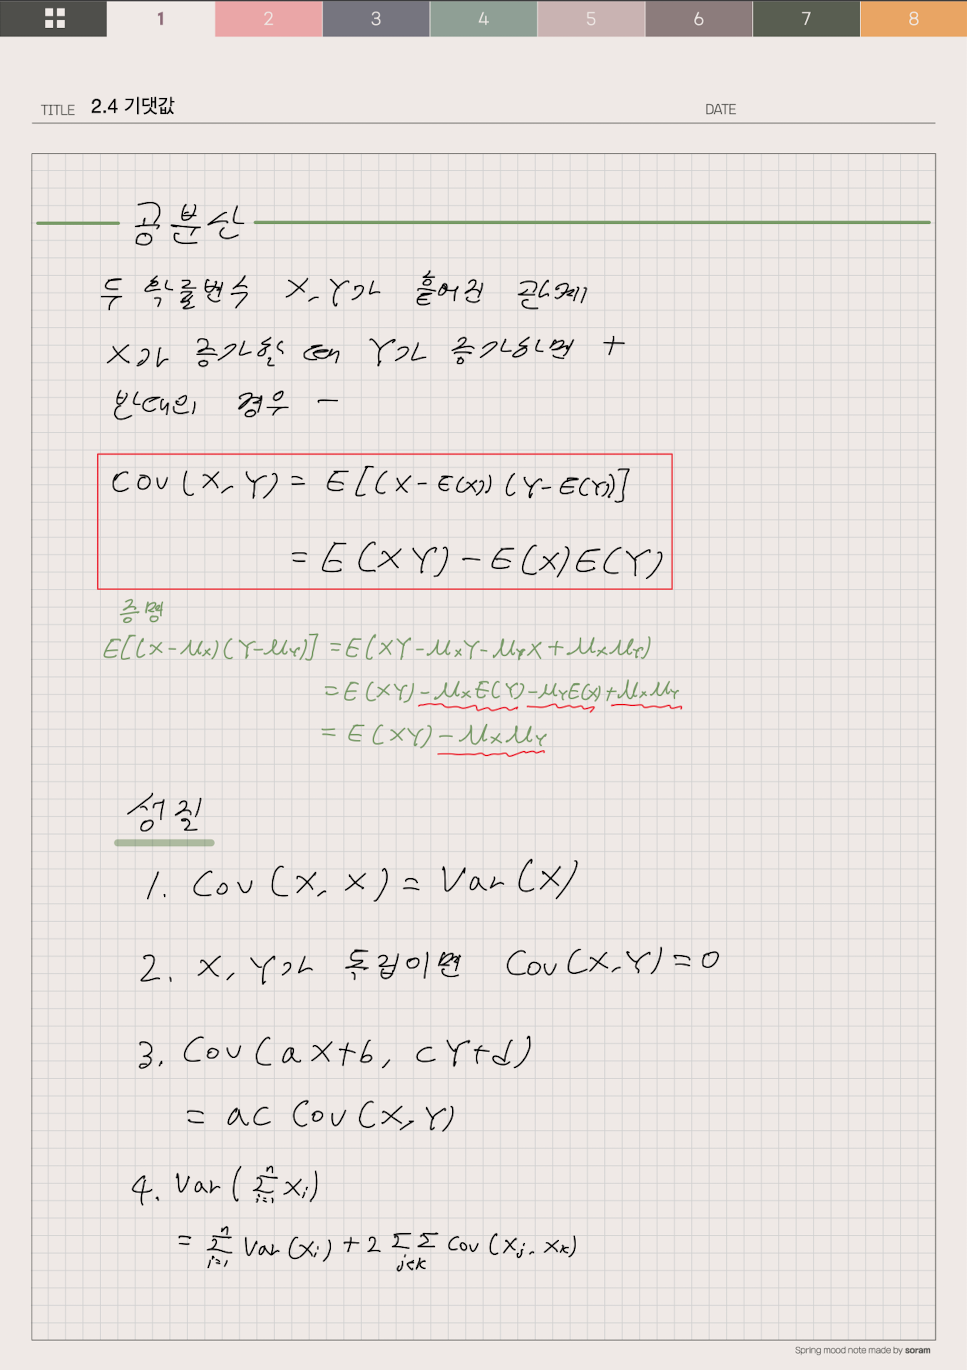 1 2 3 4 5 6 7 8
TITLE 2.4 기댓값 DATE
공분산
두 확률변수 X, Y가 흩어진 관계
X가 증가할 때 Y가 증가하면 +
반대의 경우 -
Cov(X, Y) = E[(X-E(X))(Y-E(Y))]
= E(XY) - E(X)E(Y)
증명
E[(X-μ_X)(Y-μ_Y)] = E(XY-μ_XY-μ_YX+μ_Xμ_Y)
= E(XY)-μ_XE(Y)-μ_YE(X)+μ_Xμ_Y
= E(XY)-μ_Xμ_Y
성질
1. Cov(X, X) = Var(X)
2. X, Y가 독립이면 Cov(X, Y) = 0
3. Cov(aX+b, cY+d)
= ac Cov(X, Y)
4. Var(∑_{i=1}^{n} X_i)
= ∑_{i=1}^{n} Var(X_i) + 2 ∑∑_{j<k} Cov(X_j, X_k)
Spring mood note made by soram